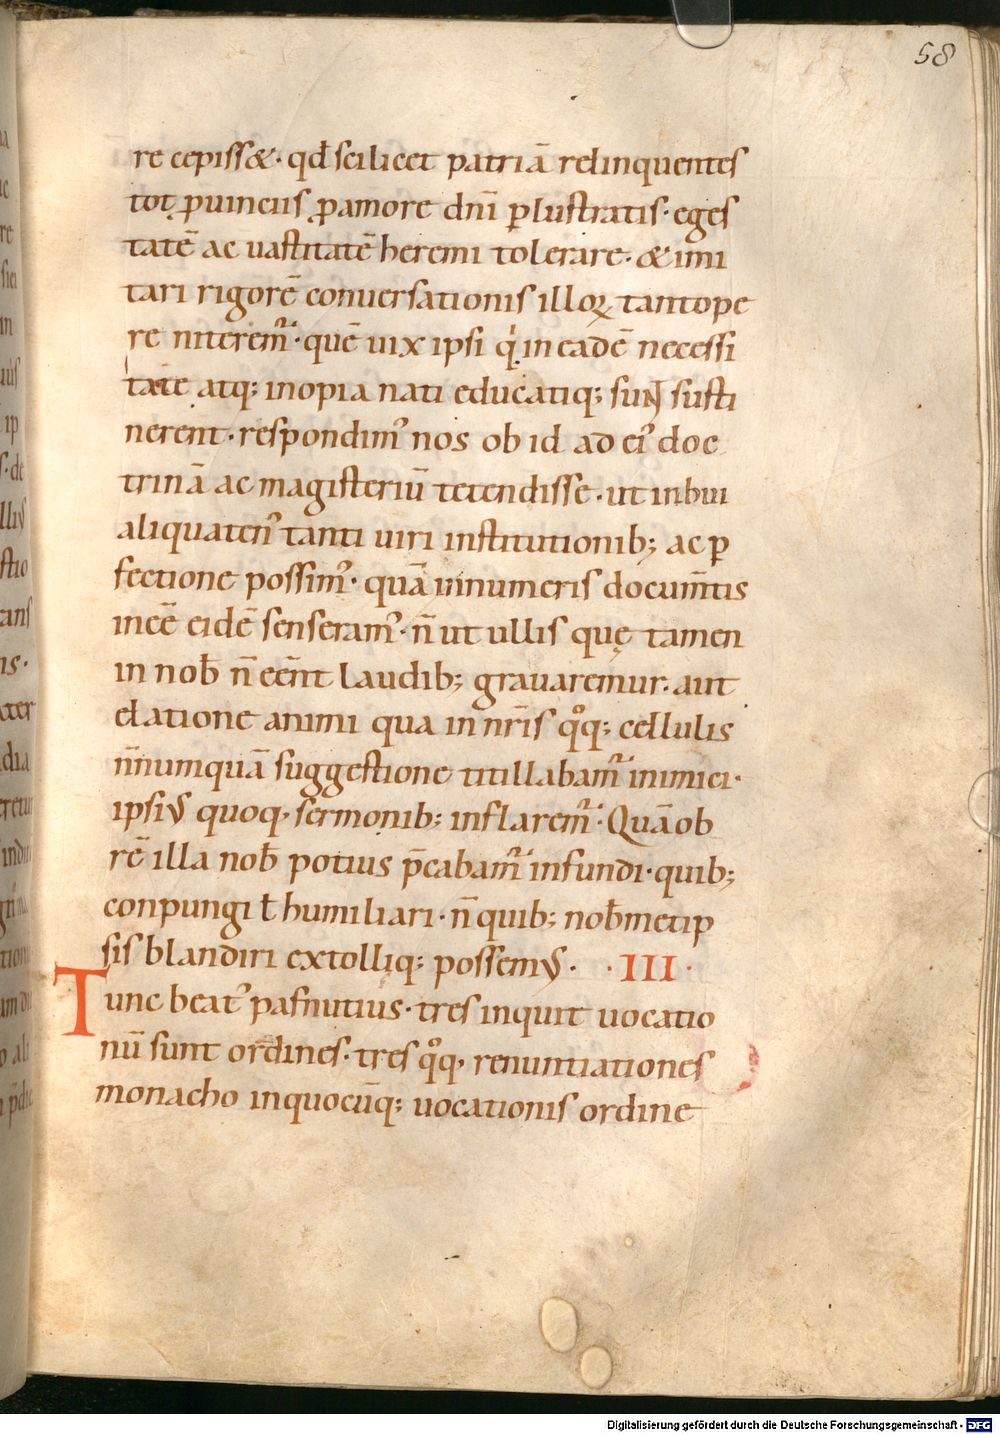 58
re cepiss&· qđ scilicet patriā relinquentes
tot ꝓuinciis ꝓ amore dn̄i ꝑlustratis· eges
tatē ac uastitatē heremi tolerare· & imi
tari rigorē conuersationis illoꝝ tantope
re niterem᷒· quē uix ipsi qͥ in eadē necessi
tate atq; inopia nati educatiq; sunt susti
nerent· respondim᷒ nos ob id ad ei᷒ doc
trinā ac magisteriū tetendisse· ut inbui
aliquaten᷒ tanti uiri institutionib; ac ꝑ
fectione possim᷒· quā innumeris docum̄tis
in ee̅ eidē senseram᷒· n̄ ut ullis quę tamen
in nob̄ n̄ eēnt laudib; grauaremur· aut
elatione animi qua in nr̄is qͦq; cellulis
nn̄umquā suggestione titillabam᷒ inimici·
ipsius quoq· sermonib; inflarem᷒· Quā ob
rē illa nob̄ potius p̄cabam᷒ infundi· quib;
conpungi ł humiliari· n̄ quib; nob̄metip
sis blandiri extolliq; possemus· ·III·
Tunc beat᷒ pafnutius· tres inquit uocatio
nū sunt ordines· tres qͦq, renuntiationes
monacho inquocūq; uocationis ordine
Digitalisierung gefördert durch die Deutsche Forschungsgemeinschaft - DFG